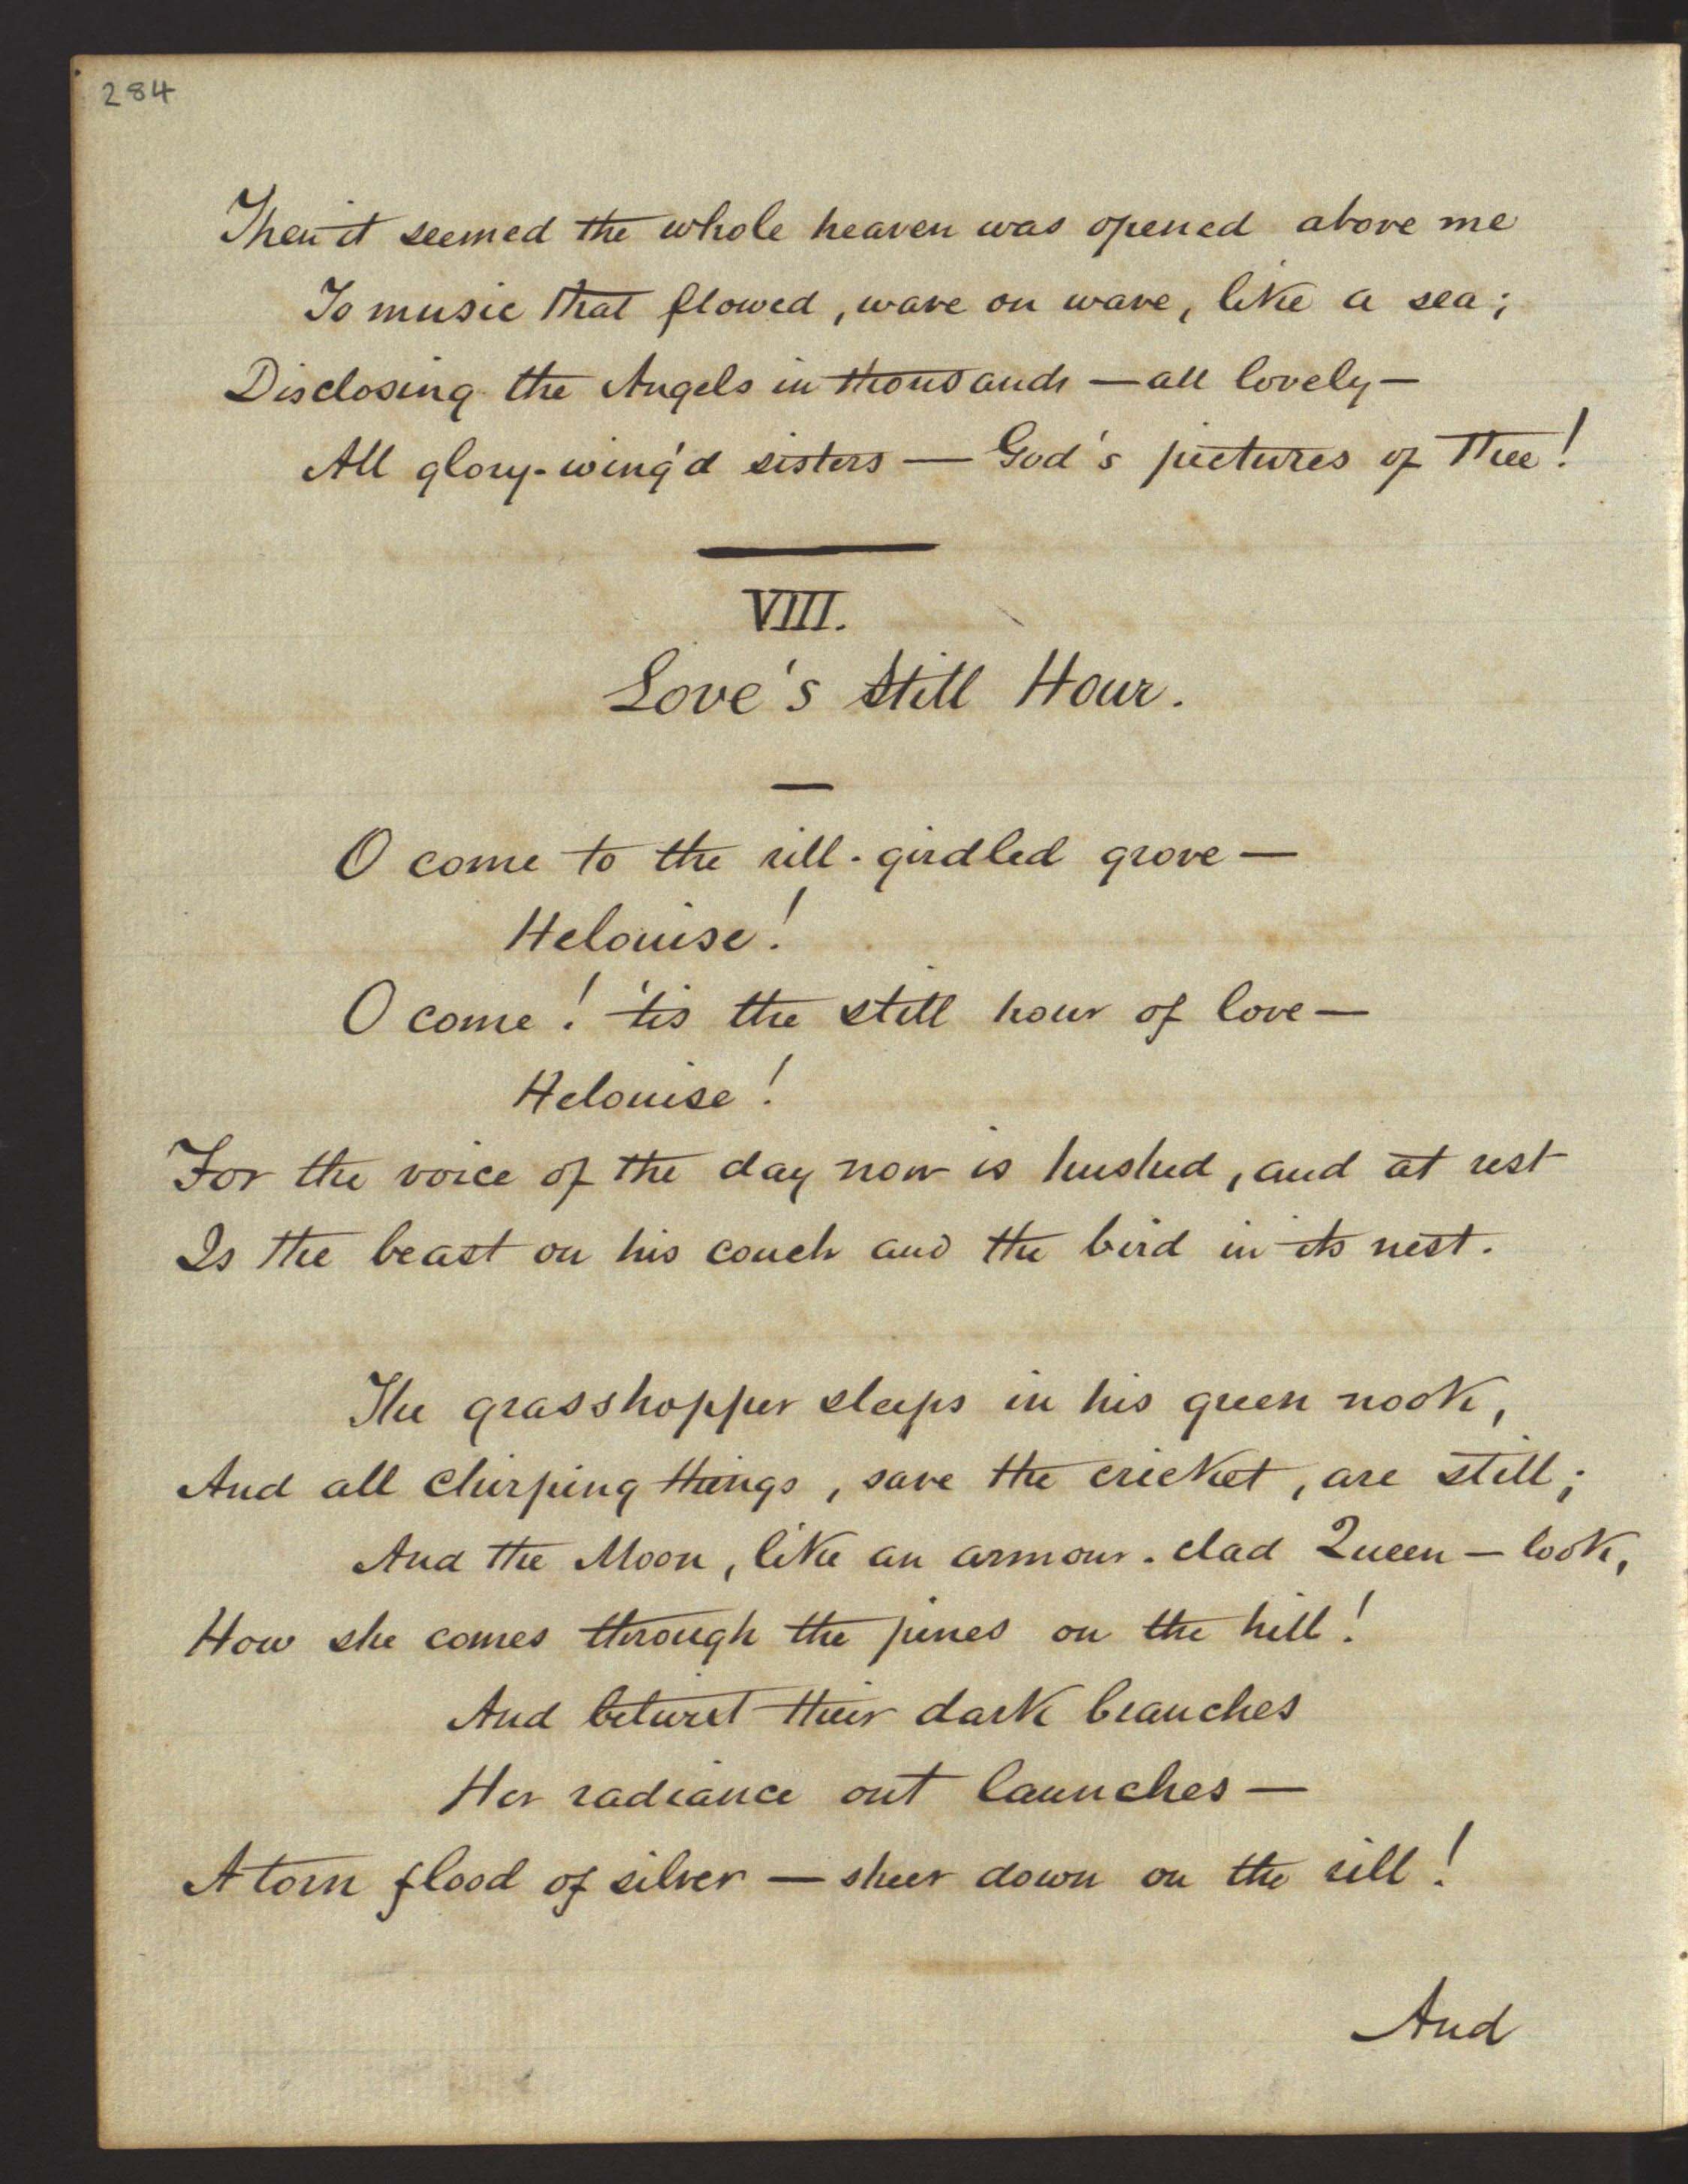 284
Then it seemed the whole heaven was opened above me
To music that flowed, wave on wave, like a sea;
Disclosing the Angels in thousands — all lovely —
All glory-wing'd sisters — God's pictures of Thee!
VIII.
Love's Still Hour.
O come to the rill-girdled grove —
Helouise!
O come! 'tis the still hour of love —
Helouise!
For the voice of the day now is hushed, and at rest
Is the beast on his couch and the bird in its nest.
The grasshopper sleeps in his green nook,
And all chirping things, save the cricket, are still;
And the Moon, like an armour-clad Queen — look,
How she comes through the pines on the hill!
And betwixt their dark branches
Her radiance out launches —
A torn flood of silver — sheer down on the rill!
And